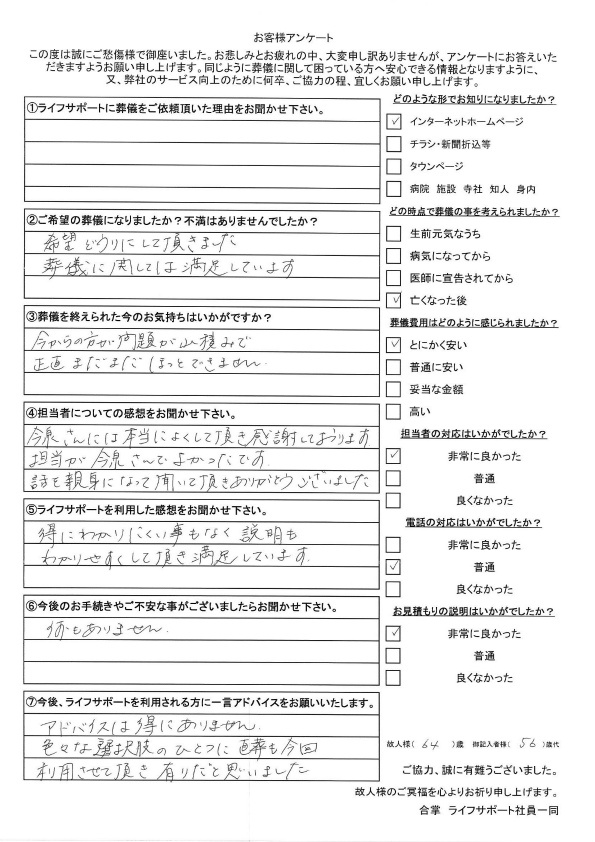 お客様アンケート
この度は誠にご愁傷様で御座いました。お悲しみとお疲れの中、大変申し訳ありませんが、アンケートにお答えいた
だきますようお願い申し上げます。同じように葬儀に関して困っている方へ安心できる情報となりますように、
又、弊社のサービス向上のために何卒、ご協力の程、宜しくお願い申し上げます。
①ライフサポートに葬儀をご依頼頂いた理由をお聞かせ下さい。
②ご希望の葬儀になりましたか？不満はありませんでしたか？
希望どうりにして頂きました
葬儀に関しては満足しています
③葬儀を終えられた今のお気持ちはいかがですか？
今からの方が問題が山積みで
正直まだまだほっとできません
④担当者についての感想をお聞かせ下さい。
今泉さんには本当によくして頂き感謝しております
担当が今泉さんでよかったです.
話を親身になって聞いて頂きありがとうございました
⑤ライフサポートを利用した感想をお聞かせ下さい。
得にわかりにくい事もなく説明も
わかりやすくして頂き満足しています.
⑥今後のお手続きやご不安な事がございましたらお聞かせ下さい。
何もありません.
⑦今後、ライフサポートを利用される方に一言アドバイスをお願いいたします。
アドバイスは得にありません.
色々な選択肢のひとつに直葬も今回
利用させて頂き有りだと思いました
どのような形でお知りになりましたか？
✓ インターネットホームページ
チラシ・新聞折込等
タウンページ
病院 施設 寺社 知人 身内
どの時点で葬儀の事を考えられましたか？
生前元気なうち
病気になってから
医師に宣告されてから
✓ 亡くなった後
葬儀費用はどのように感じられましたか？
✓ とにかく安い
普通に安い
妥当な金額
高い
担当者の対応はいかがでしたか？
✓ 非常に良かった
普通
良くなかった
電話の対応はいかがでしたか？
非常に良かった
✓ 普通
良くなかった
お見積もりの説明はいかがでしたか？
✓ 非常に良かった
普通
良くなかった
故人様( 64 )歳 御記入者様( 56 )歳代
ご協力、誠に有難うございました。
故人様のご冥福を心よりお祈り申し上げます。
合掌 ライフサポート社員一同